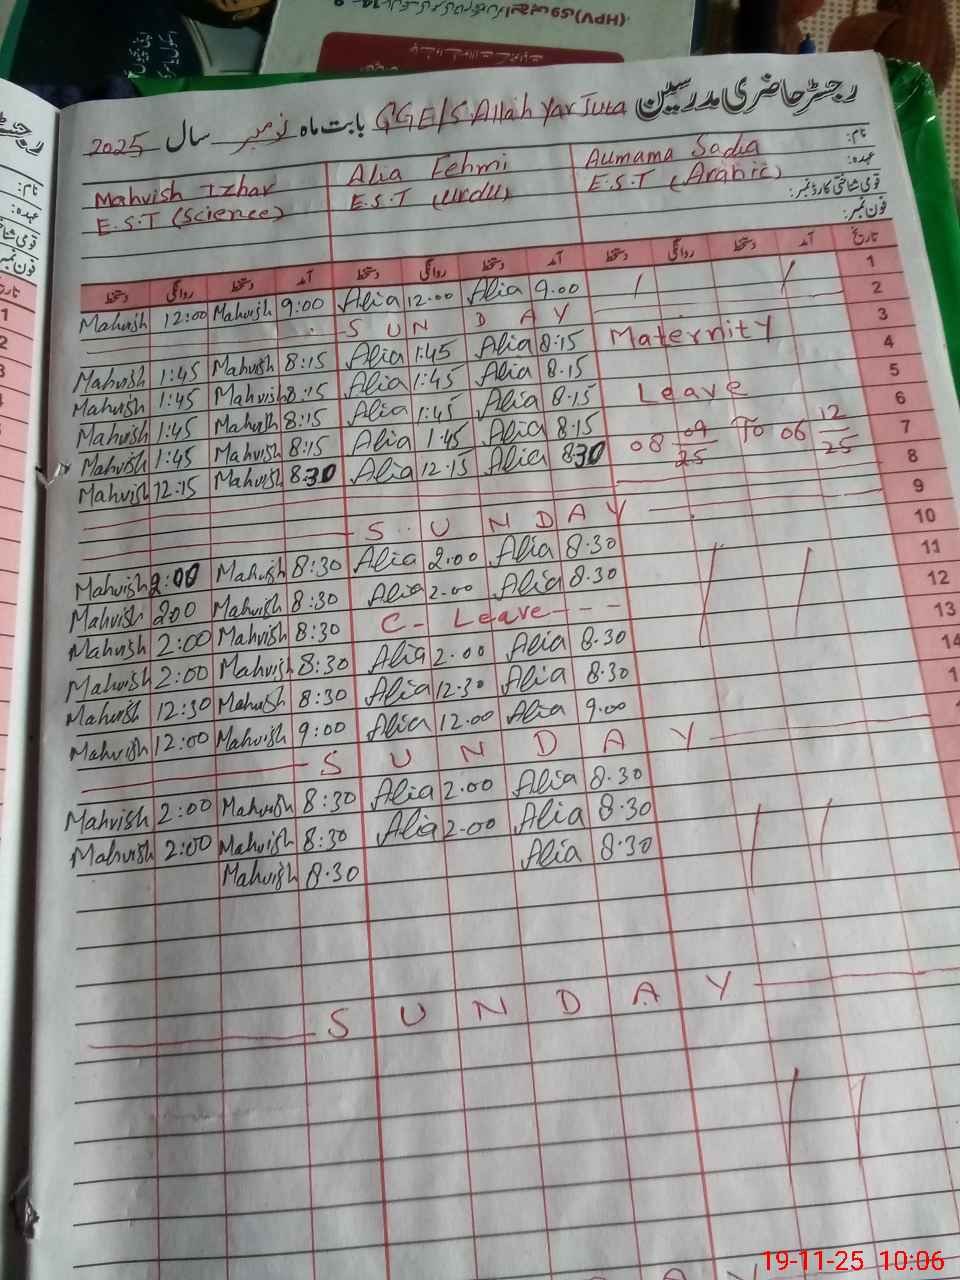 رجسٹر حاضری مدرسین GGE/S Allah Yar Juta بابت ماہ نومبر سال 2025
نام: Aumama Sadia Alia Fehmi Mahvish Izhar
عہدہ: E.S.T (Arabic) E.S.T (Urdu) E.S.T (Science)
قومی شناختی کارڈ نمبر:
فون نمبر:
تاریخ آمد دستخط روانگی دستخط آمد دستخط روانگی دستخط آمد دستخط روانگی دستخط
1
Mahvish 12:00 Mahvish 9:00 Alia 12.00 Alia 9.00 2
S U N D A Y 3
Mahvish 1:45 Mahvish 8:15 Alia 1:45 Alia 8:15 Maternity 4
Mahvish 1:45 Mahvish 8:15 Alia 1:45 Alia 8.15 5
Mahvish 1:45 Mahvish 8:15 Alia 1:45 Alia 8.15 Leave 6
Mahvish 1:45 Mahvish 8:15 Alia 1.45 Alia 8.15 08 09/25 To 06 12/25 7
Mahvish 12:15 Mahvish 8:30 Alia 12.15 Alia 830 8
9
S U N D A Y 10
Mahvish 2:00 Mahvish 8:30 Alia 2.00 Alia 8.30 11
Mahvish 200 Mahvish 8:30 Alia 2.00 Alia 8.30 12
Mahvish 2:00 Mahvish 8:30 C- Leave - - - 13
Mahvish 2:00 Mahvish 8:30 Alia 2.00 Alia 8.30 14
Mahvish 12:30 Mahvish 8:30 Alia 12.30 Alia 8.30 1
Mahvish 12:00 Mahvish 9:00 Alia 12.00 Alia 9.00
S U N D A Y
Mahvish 2:00 Mahvish 8:30 Alia 2.00 Alia 8.30
Mahvish 2:00 Mahvish 8:30 Alia 2.00 Alia 8.30
Mahvish 8.30 Alia 8.30
S U N D A Y
19-11-25 10:06